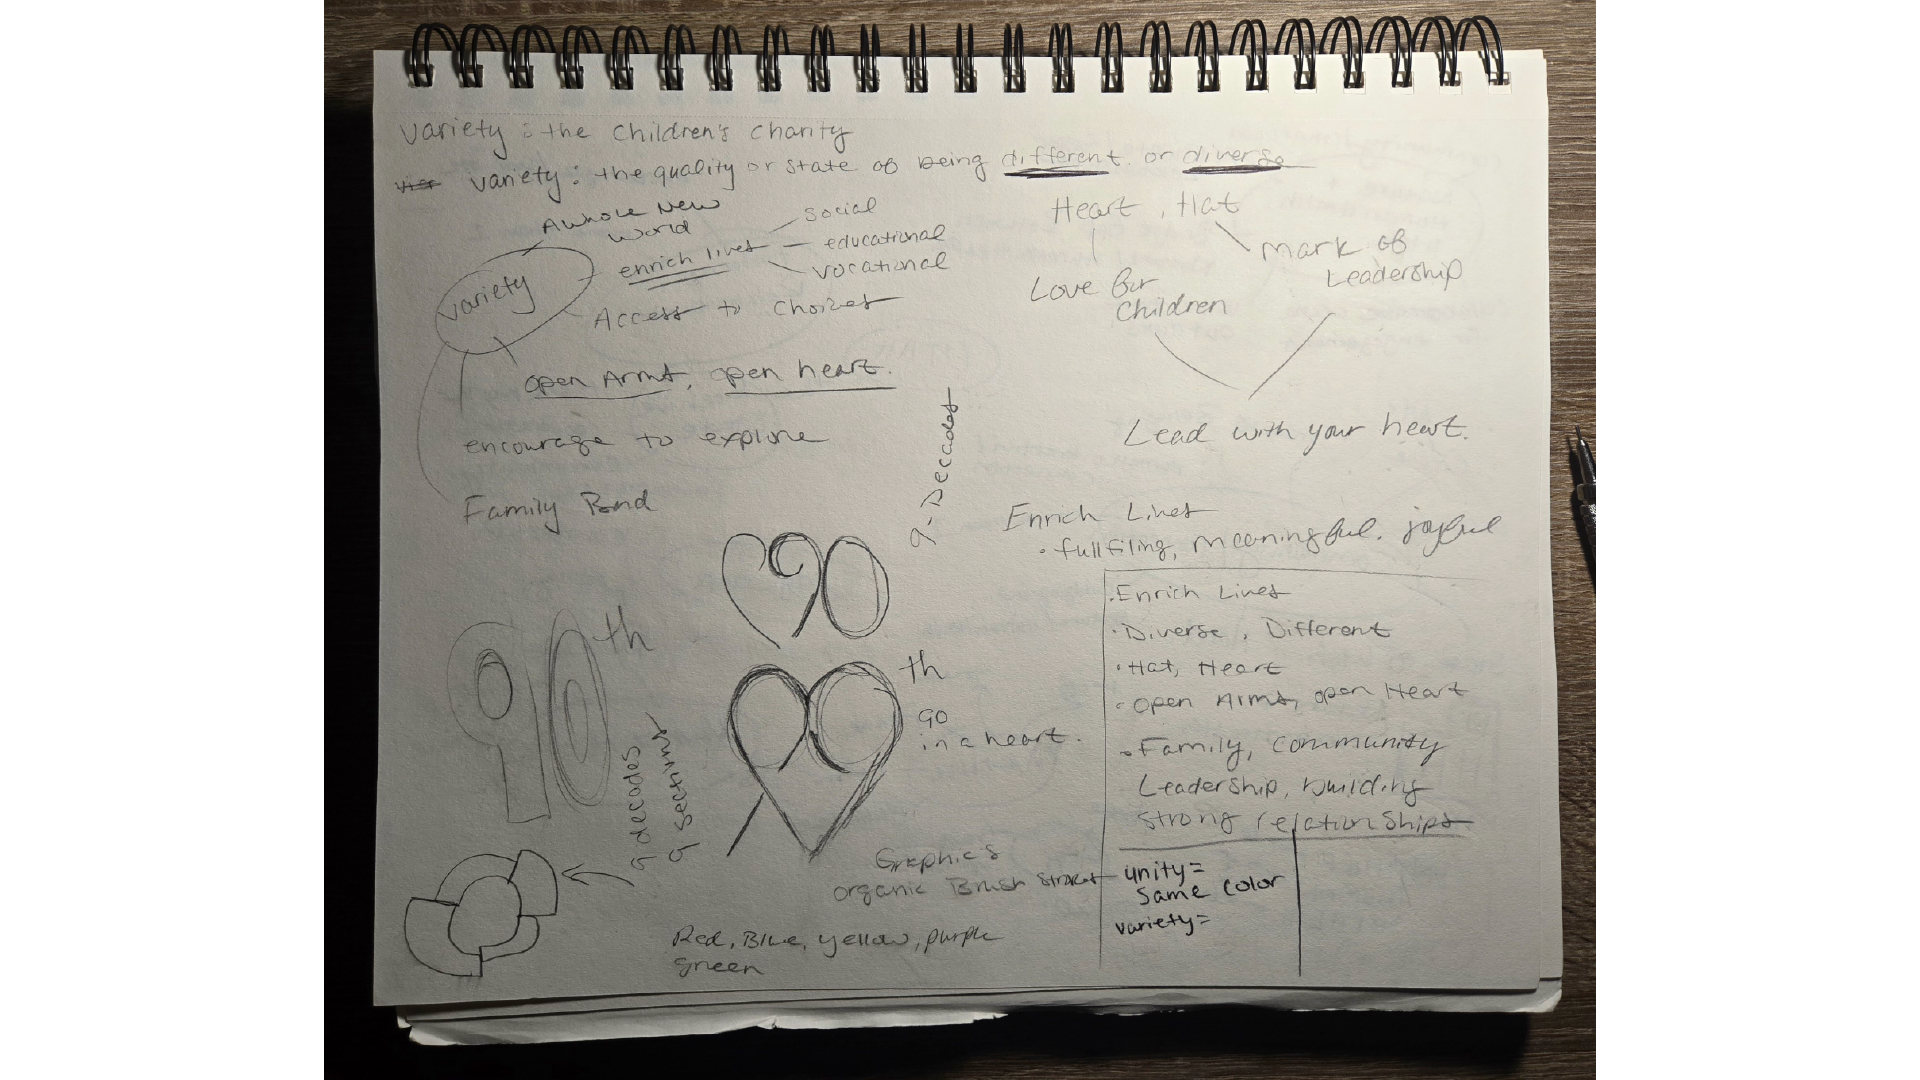 Variety : the Children's Charity
variety : the quality or state of being different or diverse
A whole New
World
variety
enrich lives
social
educational
vocational
Access to Choices
Open Arms, open heart.
encourage to explore
Family Bond
Heart , Hat
Love for
Children
mark of
Leadership
Lead with your heart.
9-Decades
Enrich Lives
• fullfiling, meaningful, joyful
• Enrich Lives
• Diverse , Different
• Hat, Heart
• Open Arms, open Heart
• Family, community
Leadership, building
Strong relationships
unity=
same color
variety=
90
90th
th
90
in a heart.
9 decades
9 sections
Graphics
organic Brush strokes
Red, Blue, yellow, purple
green